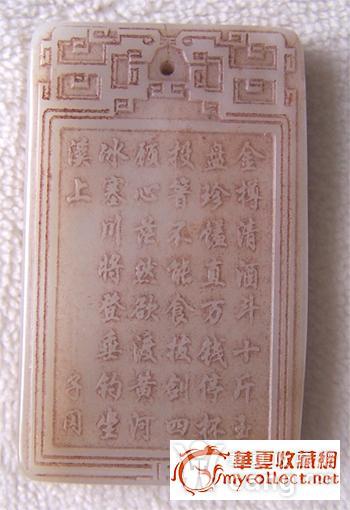 金樽清酒斗十斤玉
盘珍馐直万钱停杯
投箸不能食拔剑四
顧心茫然欲渡黄河
冰塞川將登垂钓坐
溪上 子冈
華夏收藏網
mycollect.net